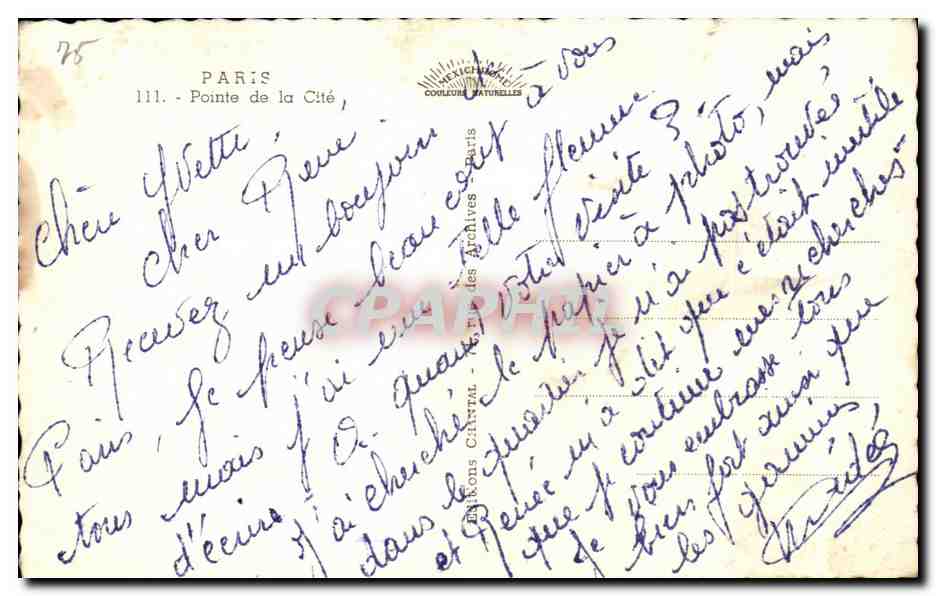 75
PARIS
111. - Pointe de la Cité
MEXICHROME
COULEURS NATURELLES
Editions CHANTAL - rue des Archives - Paris
CPAPHIL
Chère Yvette,
Cher René,
Recevez un bonjour de
Paris, je pense beaucoup à vous
tous mais j'ai une telle flemme
d'écrire! A quand votre visite?
J'ai cherché le papier à photo, mais
dans le quartier je n'ai pas trouvé,
et Renée m'a dit que c'était inutile
que je continue mes recherches
Je vous embrasse tous
bien fort ainsi que
les gamins,